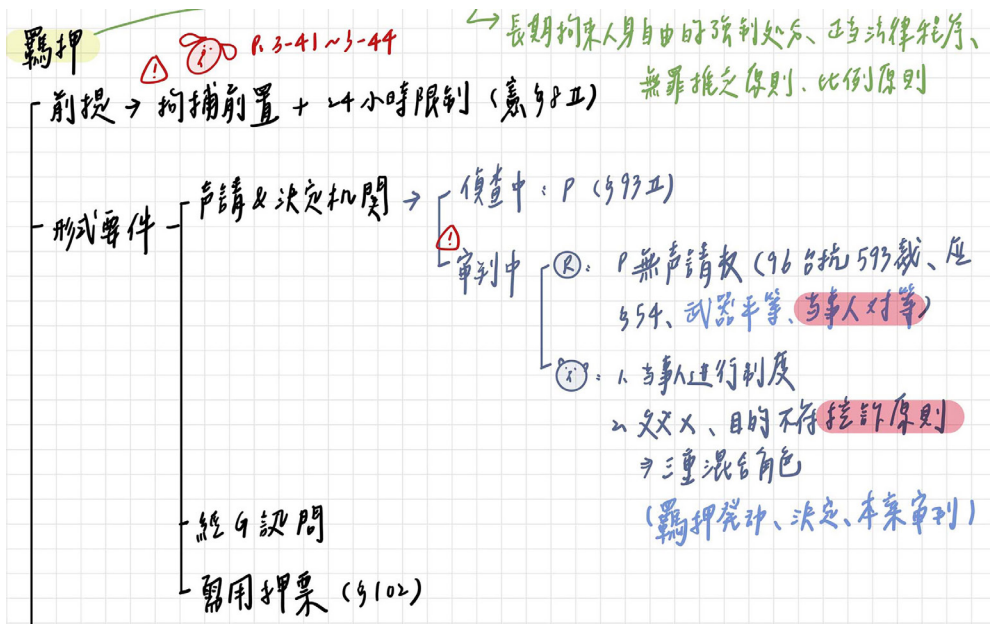 羈押
P. 3-41~3-44
↳ 長期拘束人身自由的強制処分、正当法律程序、
無罪推定原則、比例原則
前提 → 拘捕前置 + 24小時限制 (憲§8II)
形式要件
声請&決定机関 →
偵查中: P (§93II)
審判中
Ⓡ: P無声請权 (96台抗593裁、
§54、武器平等、当事人対等)
: 1. 当事人進行制度
2. 文义X、目的不符控訴原則
⇒ 三重混合角色
(羈押発动、決定、本案審判)
經G訊問
需用押票 (§102)